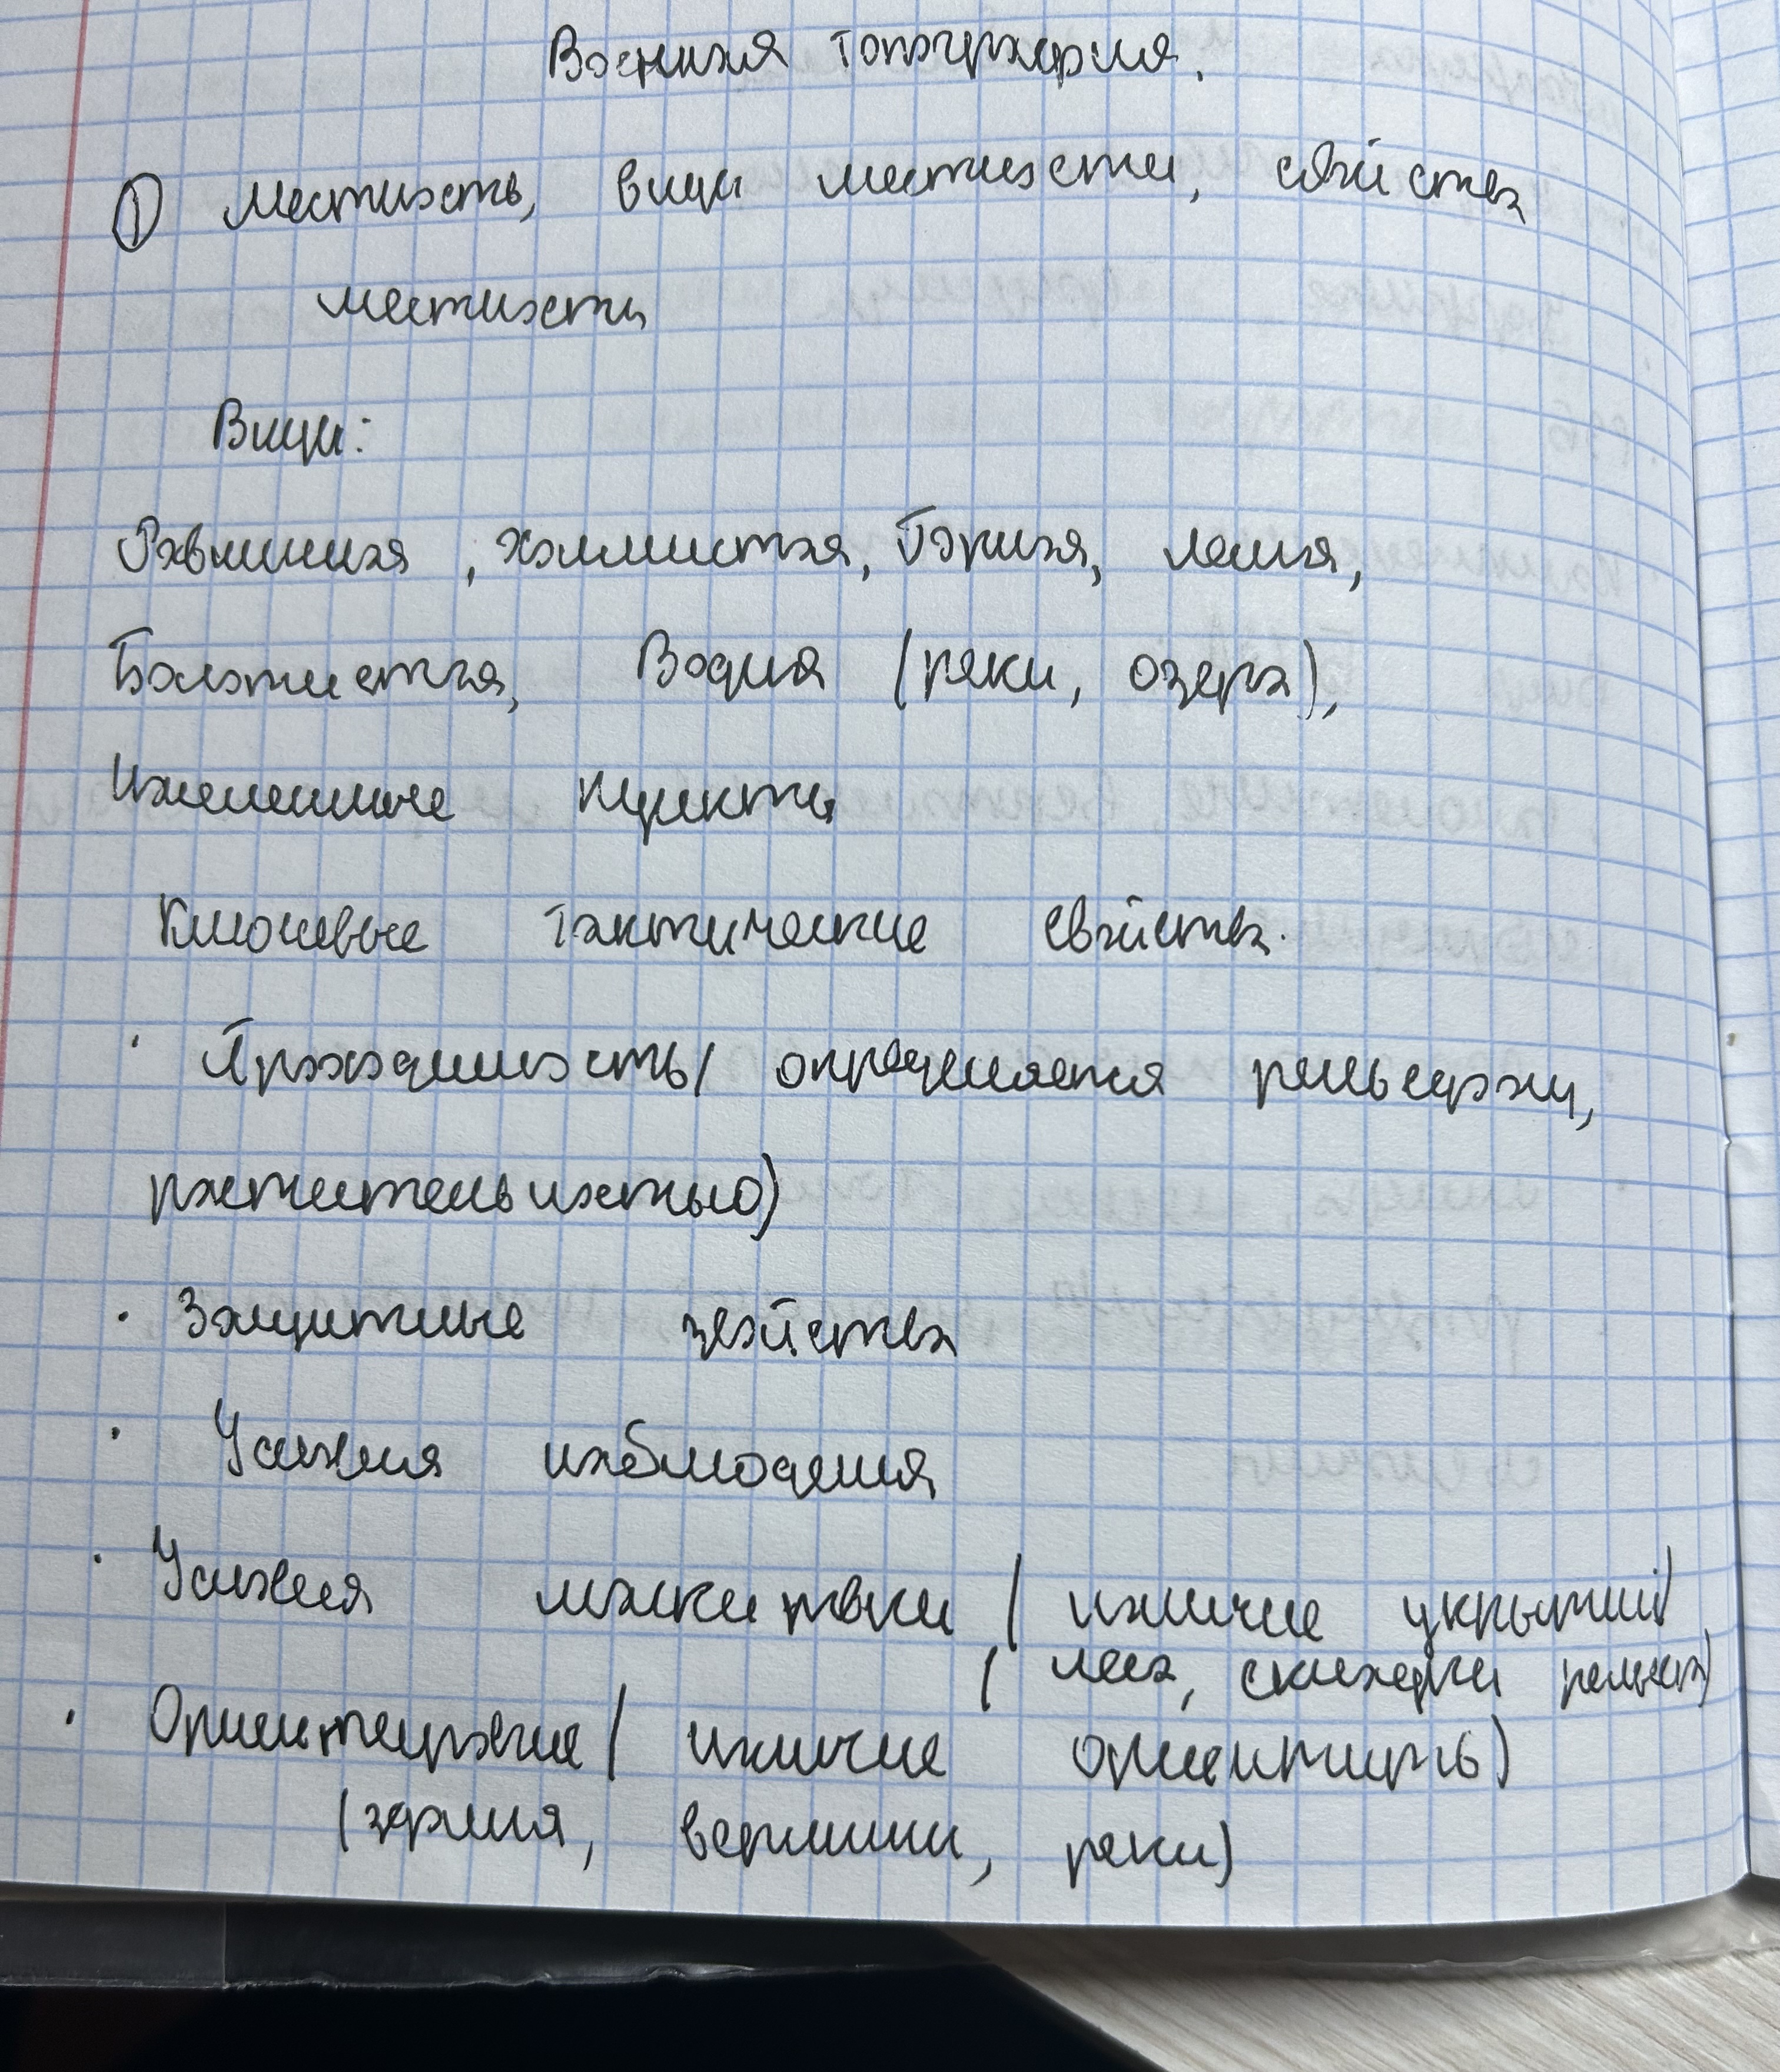 Военная топография.
① Местность, виды местности, свойства
местности
Виды:
Равнинная, Холмистая, Горная, лесная,
Болотистая, Водная (реки, озера),
Населенные пункты
Ключевые тактические свойства.
· Проходимость (определяется рельефом,
растительностью)
· Защитные свойства
· Условия наблюдения
· Условия маскировки (наличие укрытий)
(леса, складки рельефа)
· Ориентирование (наличие ориентиров)
(здания, вершины, реки)